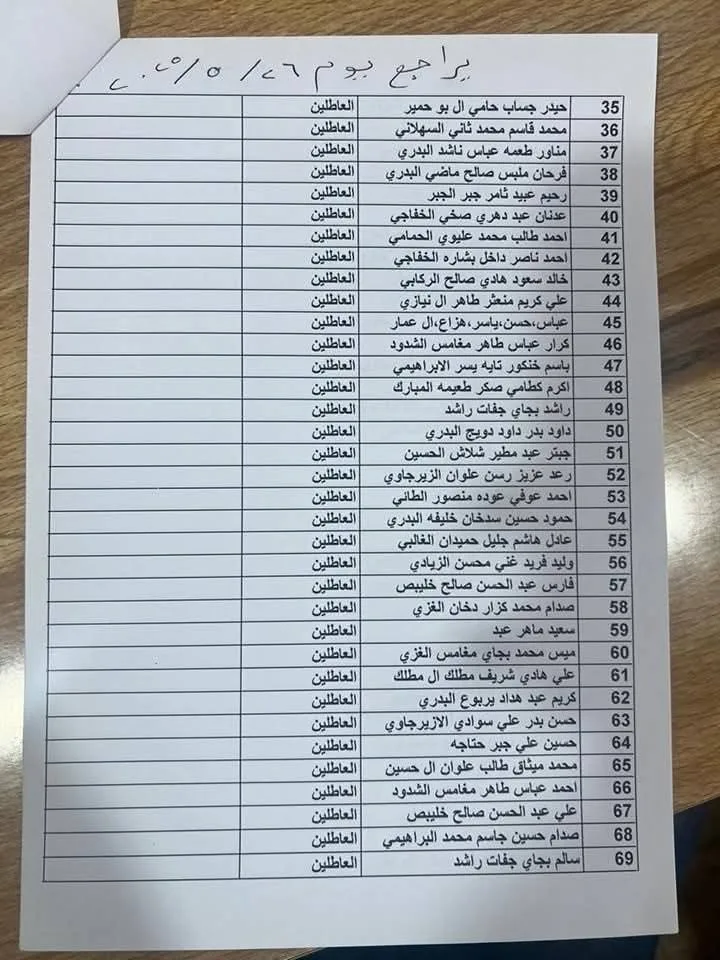 يراجع يوم ٢٦/ ٥/ ٢٠٢٥
35 حيدر جساب حامي ال بو حمير العاطلين
36 محمد قاسم محمد ثاني السهلاني العاطلين
37 مناور طعمه عباس ناشد البدري العاطلين
38 فرحان ملبس صالح ماضي البدري العاطلين
39 رحيم عبيد ثامر جبر الجبر العاطلين
40 عدنان عبد دهري صخي الخفاجي العاطلين
41 احمد طالب محمد عليوي الحمامي العاطلين
42 احمد ناصر داخل بشاره الخفاجي العاطلين
43 خالد سعود هادي صالح الركابي العاطلين
44 علي كريم منعثر طاهر ال نيازي العاطلين
45 عباس،حسن،ياسر،هزاع،ال عمار العاطلين
46 كرار عباس طاهر مغامس الشدود العاطلين
47 باسم خنكور تايه يسر الابراهيمي العاطلين
48 اكرم كطامي صكر طعيمه المبارك العاطلين
49 راشد بجاي جفات راشد العاطلين
50 داود بدر داود دويج البدري العاطلين
51 جبتر عبد مطير شلاش الحسين العاطلين
52 رعد عزيز رسن علوان الزيرجاوي العاطلين
53 احمد عوفي عوده منصور الطائي العاطلين
54 حمود حسين سدخان خليفه البدري العاطلين
55 عادل هاشم جليل حميدان الغالبي العاطلين
56 وليد فريد غني محسن الزيادي العاطلين
57 فارس عبد الحسن صالح خليبص العاطلين
58 صدام محمد كزار دخان الغزي العاطلين
59 سعيد ماهر عبد العاطلين
60 ميس محمد بجاي مغامس الغزي العاطلين
61 علي هادي شريف مطلك ال مطلك العاطلين
62 كريم عبد هداد يربوع البدري العاطلين
63 حسن بدر علي سوادي الازيرجاوي العاطلين
64 حسين علي جبر حتاجه العاطلين
65 محمد ميثاق طالب علوان ال حسين العاطلين
66 احمد عباس طاهر مغامس الشدود العاطلين
67 علي عبد الحسن صالح خليبص العاطلين
68 صدام حسين جاسم محمد البراهيمي العاطلين
69 سالم بجاي جفات راشد العاطلين